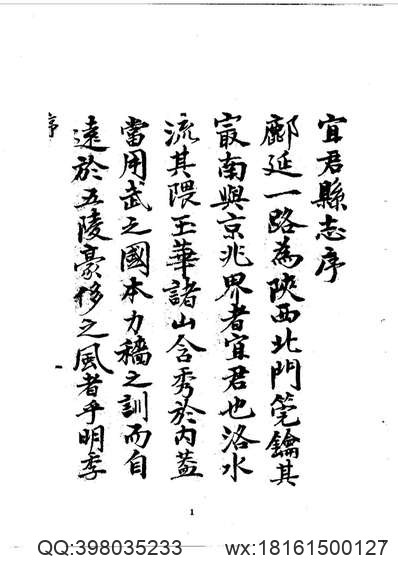 宜君縣志序
鄜延一路為陝西北門筦鑰其
㝡南與京兆界者宜君也洛水
流其隈玉華諸山含秀於內蓋
當用武之國本力穡之訓而自
遠於五陵豪侈之風者乎明季
序
1
QQ:398035233 wx:18161500127